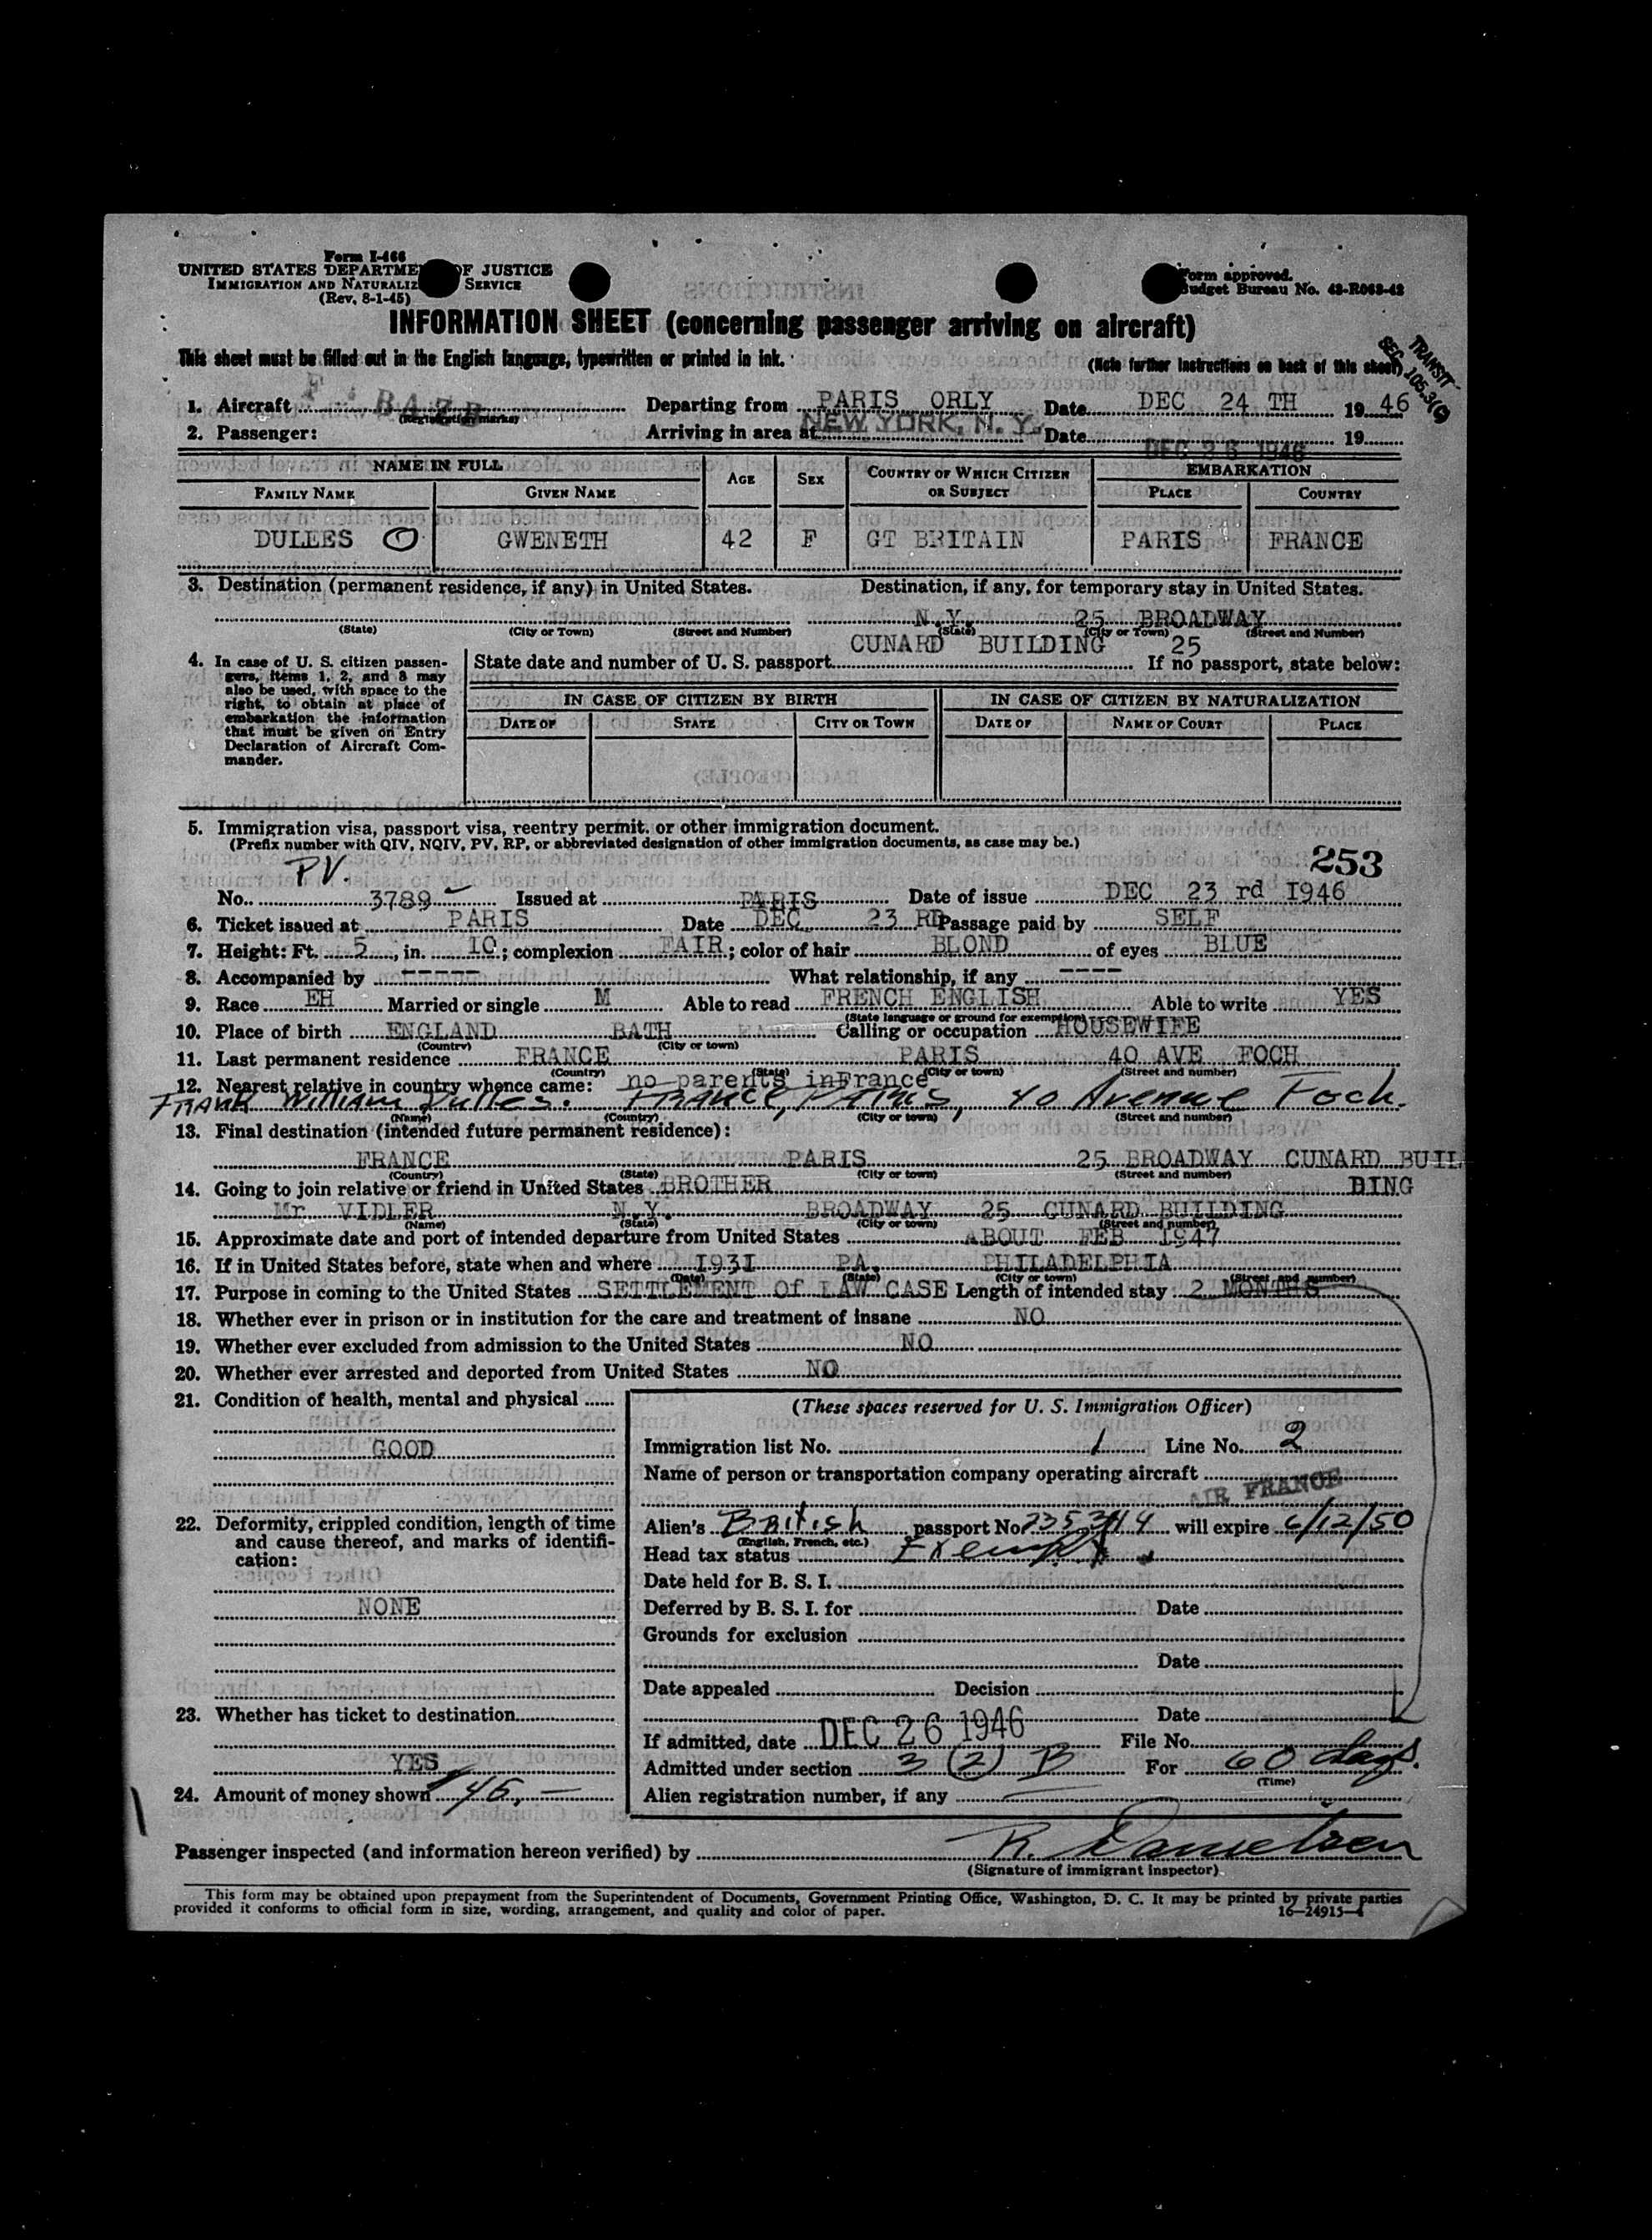 Form I-466
UNITED STATES DEPARTME OF JUSTICE
IMMIGRATION AND NATURALIZ SERVICE
(Rev. 8-1-45)
Form approved.
Budget Bureau No. 43-R063-42
INFORMATION SHEET (concerning passenger arriving on aircraft)
This sheet must be filled out in the English language, typewritten or printed in ink.
(Note further instructions on back of this sheet)
TRANSIT
SEC. 105.3(G)
1. Aircraft F. BAZB Departing from PARIS ORLY Date DEC 24 TH 19 46
(Registration marks)
2. Passenger: Arriving in area at NEW YORK, N. Y. Date DEC 26 1946 19
NAME IN FULL AGE SEX COUNTRY OF WHICH CITIZEN OR SUBJECT EMBARKATION
FAMILY NAME GIVEN NAME PLACE COUNTRY
DULLES GWENETH 42 F GT BRITAIN PARIS FRANCE
3. Destination (permanent residence, if any) in United States. Destination, if any, for temporary stay in United States.
N.Y. 25 BROADWAY
(State) (City or Town) (Street and Number) (State) (City or Town) (Street and Number)
CUNARD BUILDING 25
4. In case of U. S. citizen passengers, items 1, 2, and 8 may also be used, with space to the right, to obtain at place of embarkation the information that must be given on Entry Declaration of Aircraft Commander.
State date and number of U. S. passport If no passport, state below:
IN CASE OF CITIZEN BY BIRTH IN CASE OF CITIZEN BY NATURALIZATION
DATE OF STATE CITY OR TOWN DATE OF NAME OF COURT PLACE
5. Immigration visa, passport visa, reentry permit. or other immigration document.
(Prefix number with QIV, NQIV, PV, RP, or abbreviated designation of other immigration documents, as case may be.)
253
PV.
No. 3789 Issued at PARIS Date of issue DEC 23 rd I946
6. Ticket issued at PARIS Date DEC 23 RD Passage paid by SELF
7. Height: Ft. 5, in. IO; complexion FAIR; color of hair BLOND of eyes BLUE
8. Accompanied by ----- What relationship, if any ----
9. Race EH Married or single M Able to read FRENCH ENGLISH Able to write YES
(State language or ground for exemption)
10. Place of birth ENGLAND BATH Calling or occupation HOUSEWIFE
(Country) (City or town)
11. Last permanent residence FRANCE PARIS 40 AVE FOCH
(Country) (State) (City or town) (Street and number)
12. Nearest relative in country whence came: no parents inFrance
FRANK William Dulles. FRANCE, PARIS, 40 Avenue Foch.
(Name) (Country) (City or town) (Street and number)
13. Final destination (intended future permanent residence):
FRANCE PARIS 25 BROADWAY CUNARD BUIL
(Country) (State) (City or town) (Street and number)
14. Going to join relative or friend in United States BROTHER DING
Mr VIDLER N.Y. BROADWAY 25 CUNARD BUILDING
(Name) (State) (City or town) (Street and number)
15. Approximate date and port of intended departure from United States ABOUT FEB I947
16. If in United States before, state when and where I93I PA. PHILADELPHIA
(Date) (State) (City or town) (Street and number)
17. Purpose in coming to the United States SETTLEMENT Of LAW CASE Length of intended stay 2 MONTHS
18. Whether ever in prison or in institution for the care and treatment of insane NO
19. Whether ever excluded from admission to the United States NO
20. Whether ever arrested and deported from United States NO
21. Condition of health, mental and physical
GOOD
22. Deformity, crippled condition, length of time and cause thereof, and marks of identification:
NONE
23. Whether has ticket to destination
YES
24. Amount of money shown 45,—
(These spaces reserved for U. S. Immigration Officer)
Immigration list No. 1 Line No. 2
Name of person or transportation company operating aircraft
AIR FRANCE
Alien's British passport No. will expire 6/12/50
(English, French, etc.)
Head tax status Exempt
Date held for B. S. I.
Deferred by B. S. I. for Date
Grounds for exclusion
Date
Date appealed Decision
Date
If admitted, date DEC 26 1946 File No.
Admitted under section 3 (2) B For 60 days.
(Time)
Alien registration number, if any
Passenger inspected (and information hereon verified) by R. Danielsen
(Signature of immigrant inspector)
This form may be obtained upon prepayment from the Superintendent of Documents, Government Printing Office, Washington, D. C. It may be printed by private parties
provided it conforms to official form in size, wording, arrangement, and quality and color of paper. 16—24915-1